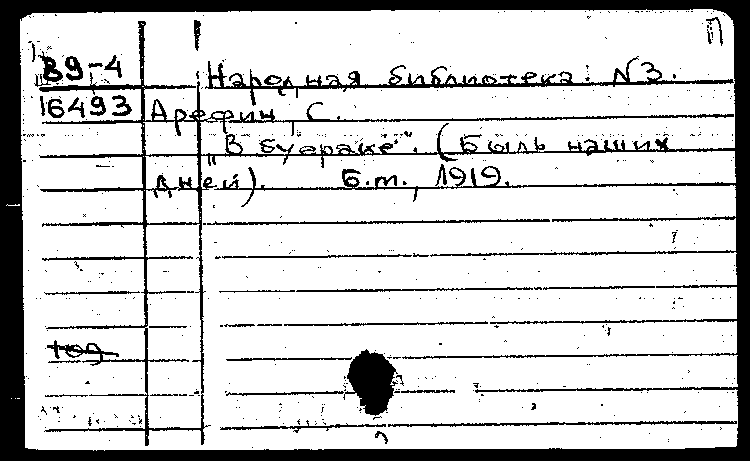 П
В9-4 Народная библиотека: N3.
16493 Арефин, С.
„В буераке". (Быль наших
дней). Б.т., 1919.